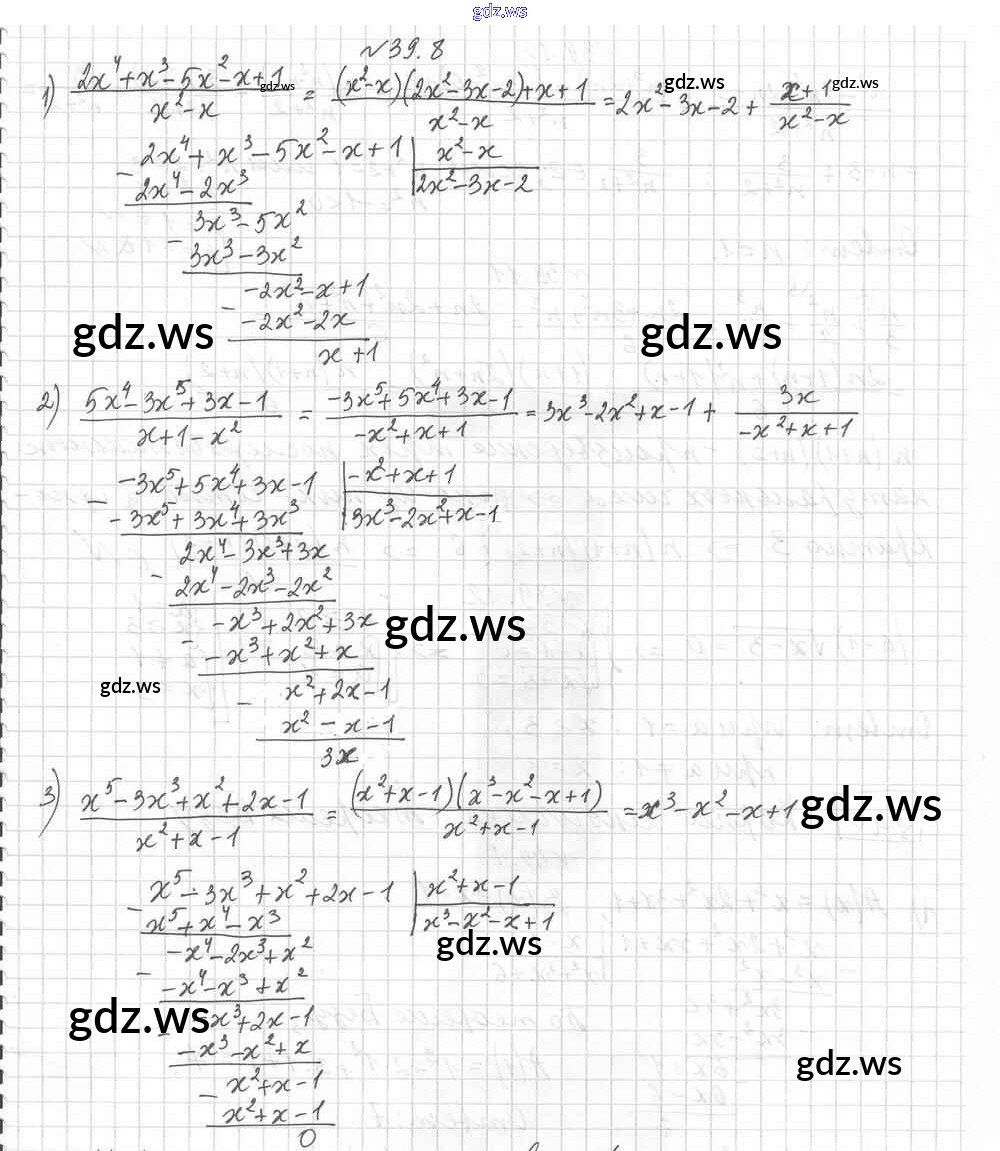 gdz.ws
№39.8
1) (2x⁴+x³-5x²-x+1)/(x²-x) = ((x²-x)(2x²-3x-2)+x+1)/(x²-x) = 2x²-3x-2 + (x+1)/(x²-x)
gdz.ws gdz.ws gdz.ws
- 2x⁴+x³-5x²-x+1 | x²-x
2x⁴-2x³ | 2x²-3x-2
3x³-5x²
- 3x³-3x²
-2x²-x+1
- -2x²-2x
x+1
gdz.ws gdz.ws
2) (5x⁴-3x⁵+3x-1)/(x+1-x²) = (-3x⁵+5x⁴+3x-1)/(-x²+x+1) = 3x³-2x²+x-1 + 3x/(-x²+x+1)
- -3x⁵+5x⁴+3x-1 | -x²+x+1
-3x⁵+3x⁴+3x³ | 3x³-2x²+x-1
2x⁴-3x³+3x
- 2x⁴-2x³-2x²
-x³+2x²+3x
gdz.ws
- -x³+x²+x
gdz.ws
- x²+2x-1
x²-x-1
3x
3) (x⁵-3x³+x²+2x-1)/(x²+x-1) = ((x²+x-1)(x³-x²-x+1))/(x²+x-1) = x³-x²-x+1
gdz.ws
- x⁵-3x³+x²+2x-1 | x²+x-1
x⁵+x⁴-x³ | x³-x²-x+1
gdz.ws
-x⁴-2x³+x²
- -x⁴-x³+x²
x³+2x-1
gdz.ws
- -x³-x²+x
gdz.ws
- x²+x-1
x²+x-1
0